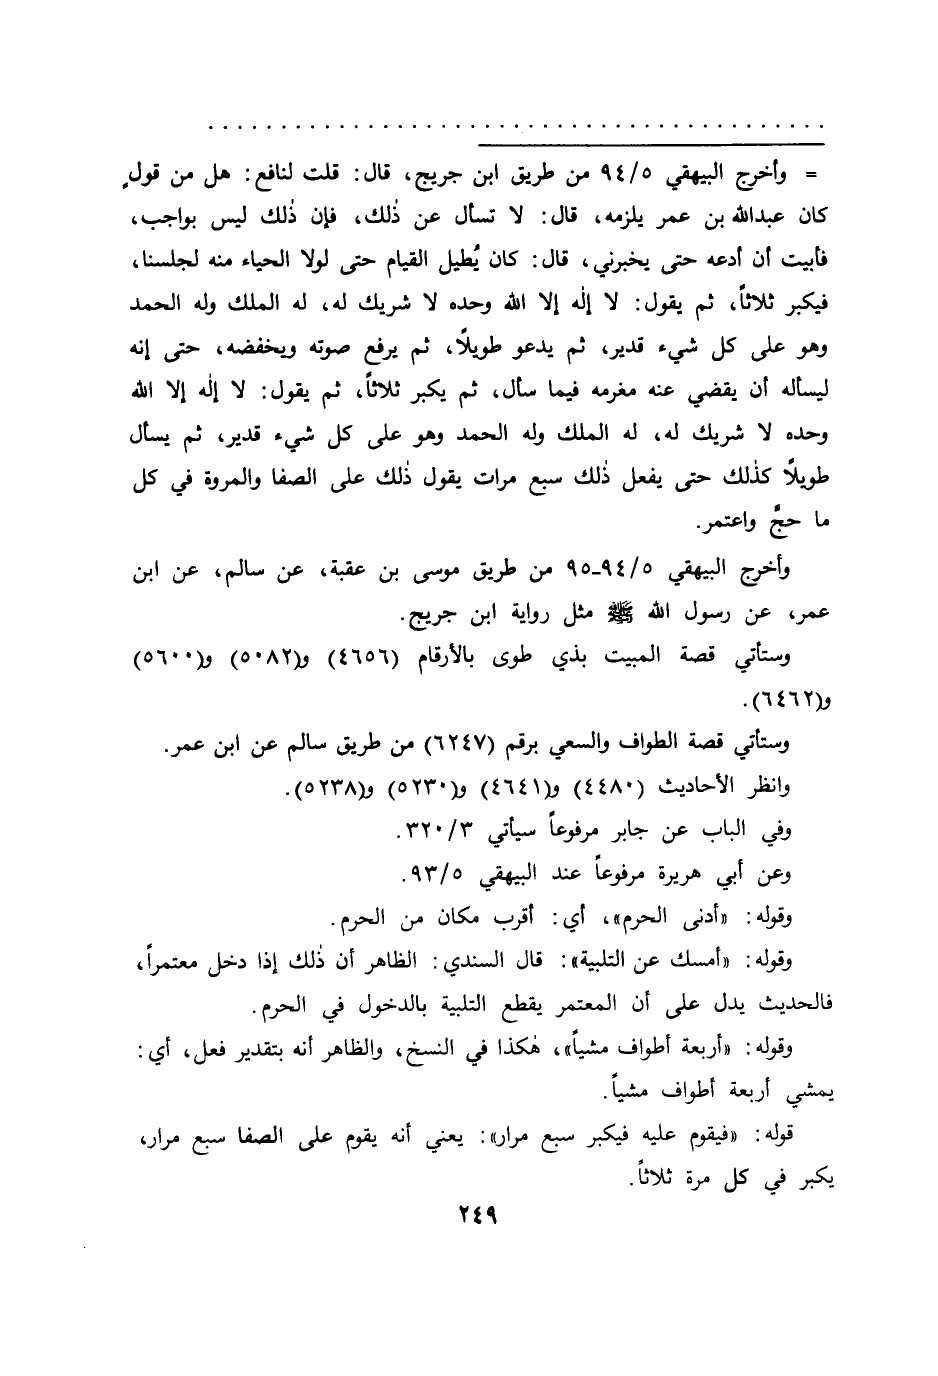 = وأخرج البيهقي ٩٤/٥ من طريق ابن جريج، قال: قلت لنافع: هل من قولٍ
كان عبدالله بن عمر يلزمه، قال: لا تسأل عن ذٰلك، فإن ذٰلك ليس بواجب،
فأبيت أن أدعه حتى يخبرني، قال: كان يُطيل القيام حتى لولا الحياء منه لجلسنا،
فيكبر ثلاثاً، ثم يقول: لا إلٰه إلا الله وحده لا شريك له، له الملك وله الحمد
وهو على كل شيء قدير، ثم يدعو طويلًا، ثم يرفع صوته ويخفضه، حتى إنه
ليسأله أن يقضي عنه مغرمه فيما سأل، ثم يكبر ثلاثاً، ثم يقول: لا إلٰه إلا الله
وحده لا شريك له، له الملك وله الحمد وهو على كل شيء قدير، ثم يسأل
طويلًا كذٰلك حتى يفعل ذٰلك سبع مرات يقول ذٰلك على الصفا والمروة في كل
ما حجَّ واعتمر.
وأخرج البيهقي ٩٤/٥-٩٥ من طريق موسى بن عقبة، عن سالم، عن ابن
عمر، عن رسول الله ﷺ مثل رواية ابن جريج.
وستأتي قصة المبيت بذي طوى بالأرقام (٤٦٥٦) و(٥٠٨٢) و(٥٦٠٠)
و(٦٤٦٢).
وستأتي قصة الطواف والسعي برقم (٦٢٤٧) من طريق سالم عن ابن عمر.
وانظر الأحاديث (٤٤٨٠) و(٤٦٤١) و(٥٢٣٠) و(٥٢٣٨).
وفي الباب عن جابر مرفوعاً سيأتي ٣٢٠/٣.
وعن أبي هريرة مرفوعاً عند البيهقي ٩٣/٥.
وقوله: «أدنى الحرم»، أي: أقرب مكان من الحرم.
وقوله: «أمسك عن التلبية»: قال السندي: الظاهر أن ذٰلك إذا دخل معتمراً،
فالحديث يدل على أن المعتمر يقطع التلبية بالدخول في الحرم.
وقوله: «أربعة أطواف مشياً»، هٰكذا في النسخ، والظاهر أنه بتقدير فعل، أي:
يمشي أربعة أطواف مشياً.
قوله: «فيقوم عليه فيكبر سبع مرار»: يعني أنه يقوم على الصفا سبع مرار،
يكبر في كل مرة ثلاثاً.
٢٤٩